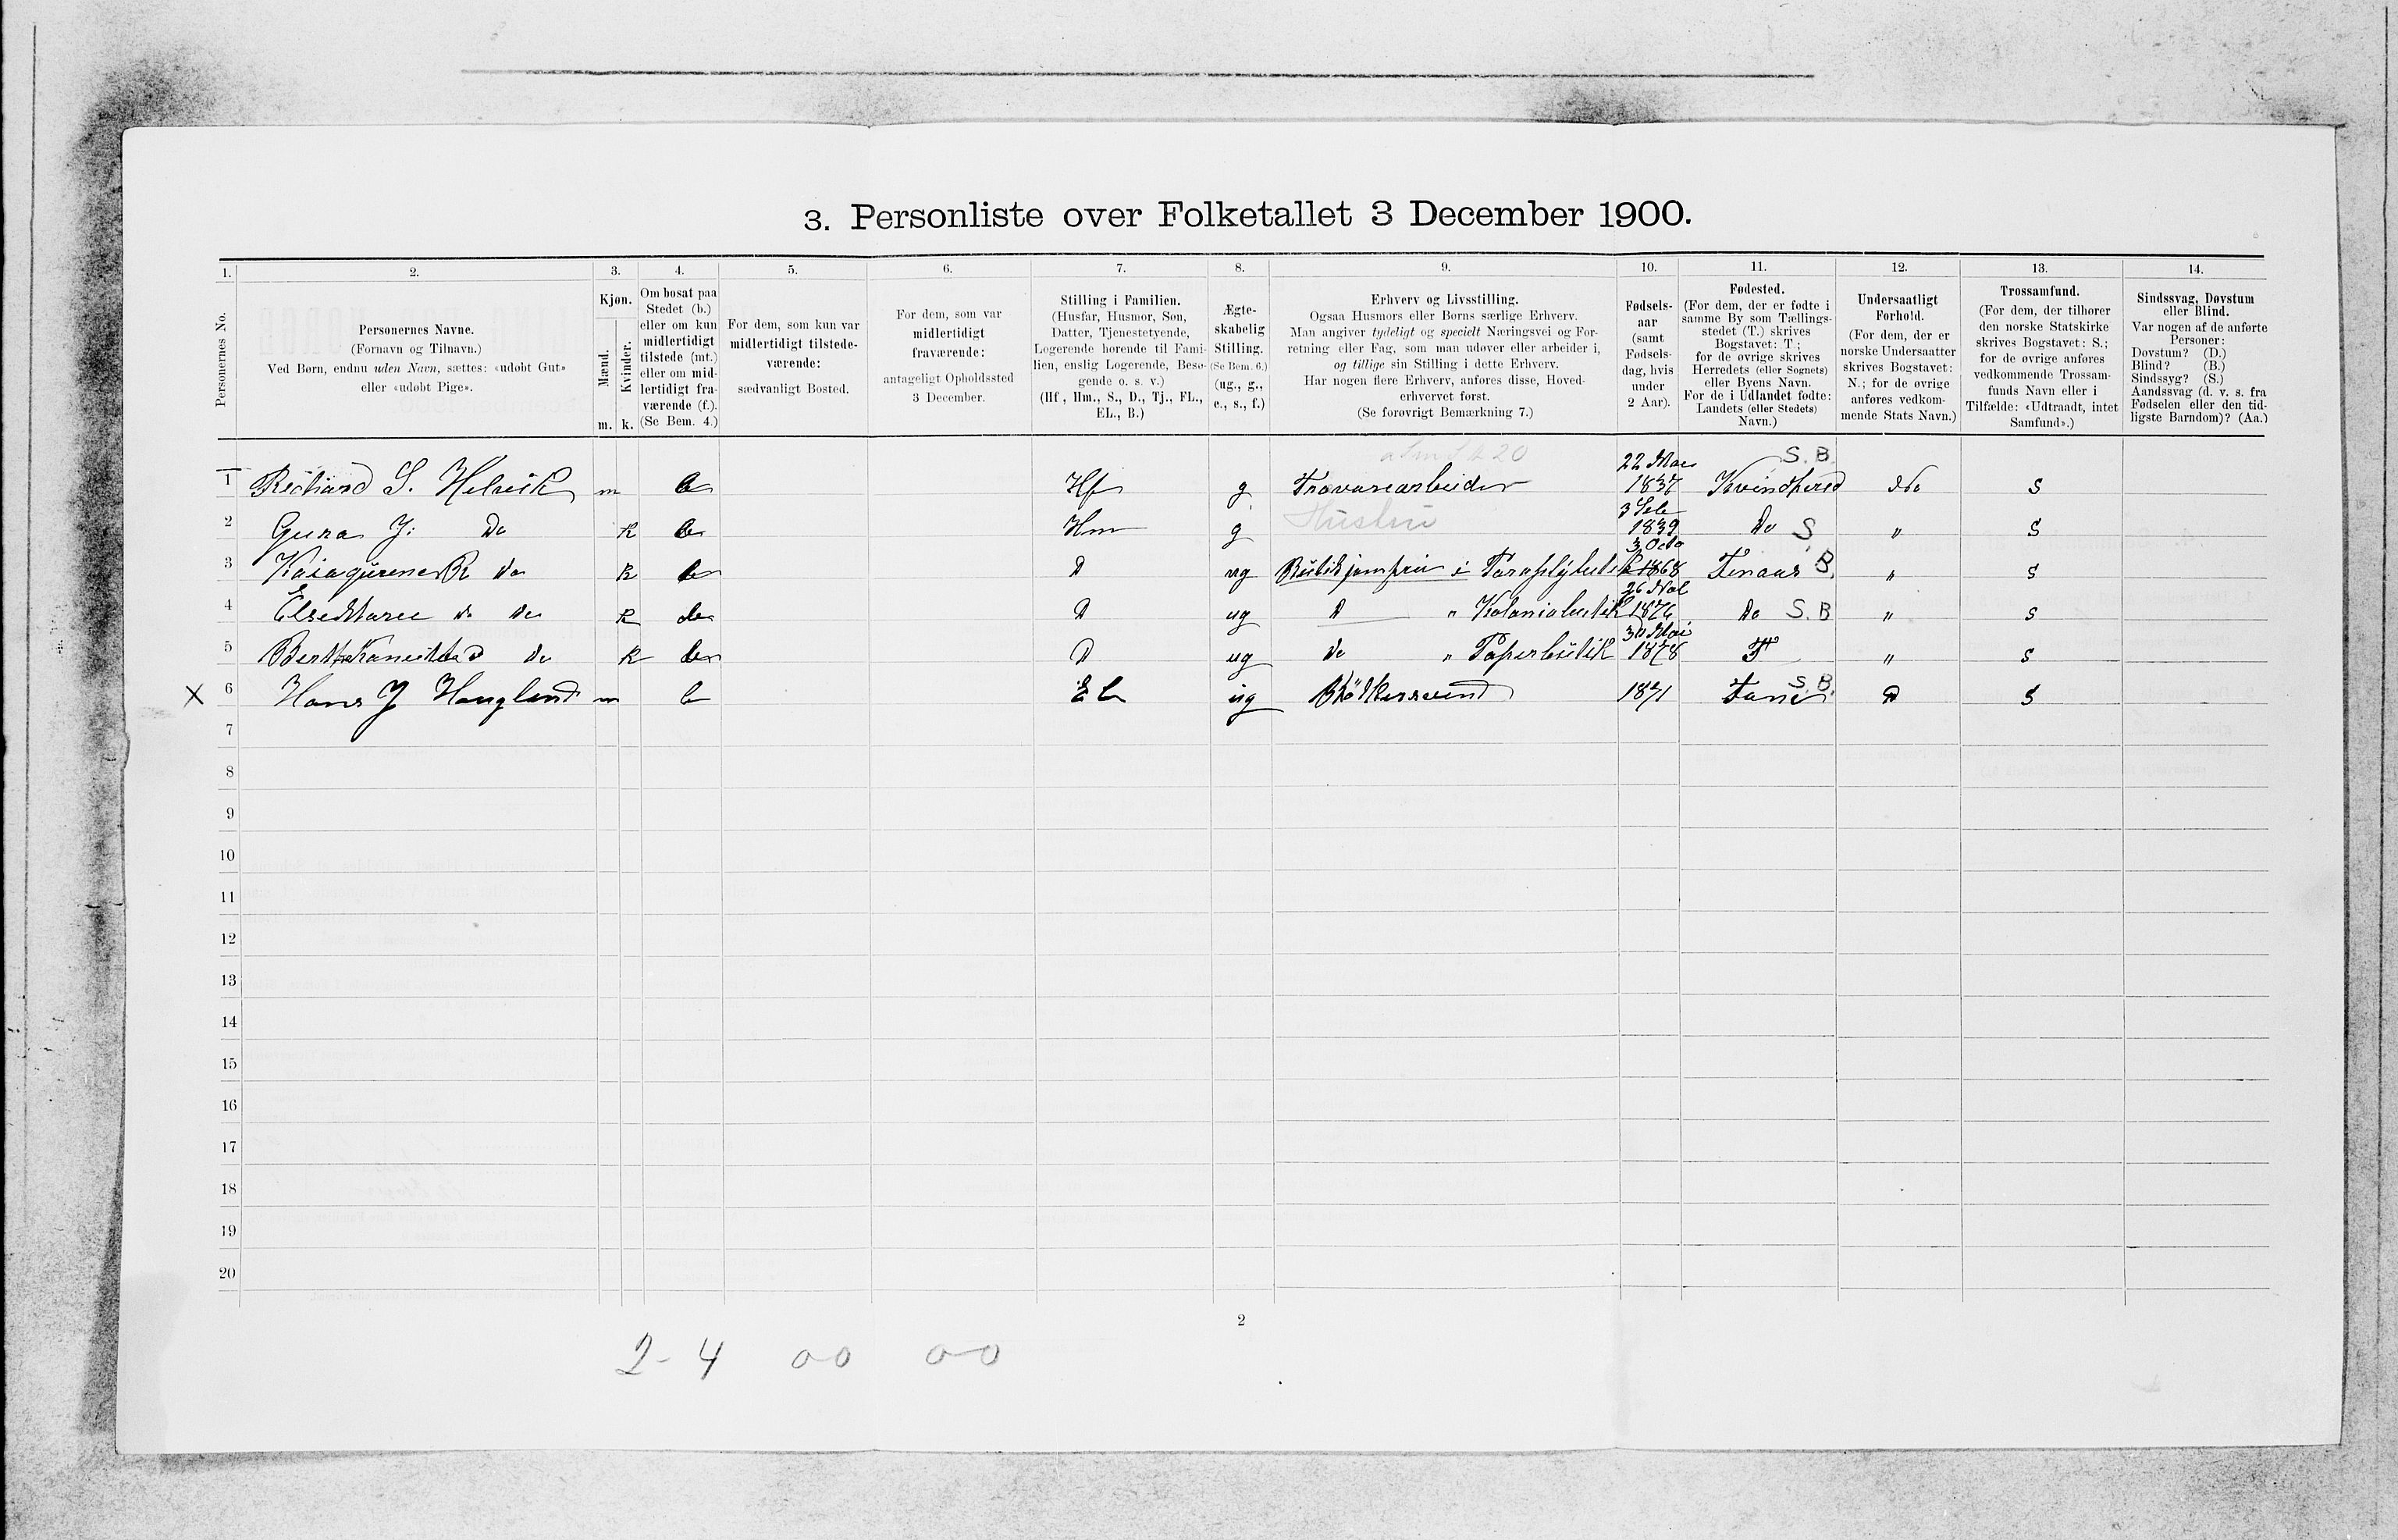 3. Personliste over Folketallet 3 December 1900.
1. 2. 3. 4. 5. 6. 7. 8. 9. 10. 11. 12. 13. 14.
Personernes No.
Personernes Navne.
(Fornavn og Tilnavn.)
Ved Børn, endnu uden Navn, sættes: «udøbt Gut»
eller «udøbt Pige».
Kjøn.
Mænd.
Kvinder.
m. k.
Om bosat paa
Stedet (b.)
eller om kun
midlertidigt
tilstede (mt.)
eller om mid-
lertidigt fra-
værende (f.).
(Se Bem. 4.)
For dem, som kun var
midlertidigt tilstede-
værende:
sædvanligt Bosted.
For dem, som var
midlertidigt
fraværende:
antageligt Opholdssted
3 December.
Stilling i Familien.
(Husfar, Husmor, Søn,
Datter, Tjenestetyende,
Logerende hørende til Fami-
lien, enslig Logerende, Besø-
gende o. s. v.)
(Hf., Hm., S., D., Tj., FL.,
EL., B.)
Ægte-
skabelig
Stilling.
(Se Bem. 6.)
(ug., g.,
e., s., f.)
Erhverv og Livsstilling.
Ogsaa Husmors eller Børns særlige Erhverv.
Man angiver tydeligt og specielt Næringsvei og For-
retning eller Fag, som man udøver eller arbeider i,
og tillige sin Stilling i dette Erhverv.
Har nogen flere Erhverv, anføres disse, Hoved-
erhvervet først.
(Se forøvrigt Bemærkning 7.)
Fødsels-
aar
(samt
Fødsels-
dag, hvis
under
2 Aar).
Fødested.
(For dem, der er fødte i
samme By som Tællings-
stedet (T.) skrives
Bogstavet: T;
for de øvrige skrives
Herredets (eller Sognets)
eller Byens Navn.
For de i Udlandet fødte:
Landets (eller Stedets)
Navn.)
Undersaatligt
Forhold.
(For dem, der er
norske Undersaatter
skrives Bogstavet:
N.; for de øvrige
anføres vedkom-
mende Stats Navn.)
Trossamfund.
(For dem, der tilhører
den norske Statskirke
skrives Bogstavet: S.;
for de øvrige anføres
vedkommende Trossam-
funds Navn eller i
Tilfælde: «Udtraadt, intet
Samfund».)
Sindssvag, Døvstum
eller Blind.
Var nogen af de anførte
Personer:
Døvstum? (D.)
Blind? (B.)
Sindssyg? (S.)
Aandssvag (d. v. s. fra
Fødselen eller den tid-
ligste Barndom)? (Aa.)
22 Mai S.B.
1 Richard S. Helvik m b Hf g Travarearbeider 1837 Kvindherred No S
3
2 Gura J: Do k b Hm g Hustru 1839 Do S " S
3 Octo
3 R do k b D ug Butikjomfru i 1868 Finaas B. " S
26
4 do do k b D ug D " Kolonialbutik 1876 Do S.B " S
30 Mai
5 do k b D ug do " Papirbutik 1878 F " S
X 6 Hans J Haugland m b EL ug Bødkersvend 1871 Fane S.B. D S
7
8
9
10
11
12
13
14
15
16
17
18
19
20
2
2-4 00 00